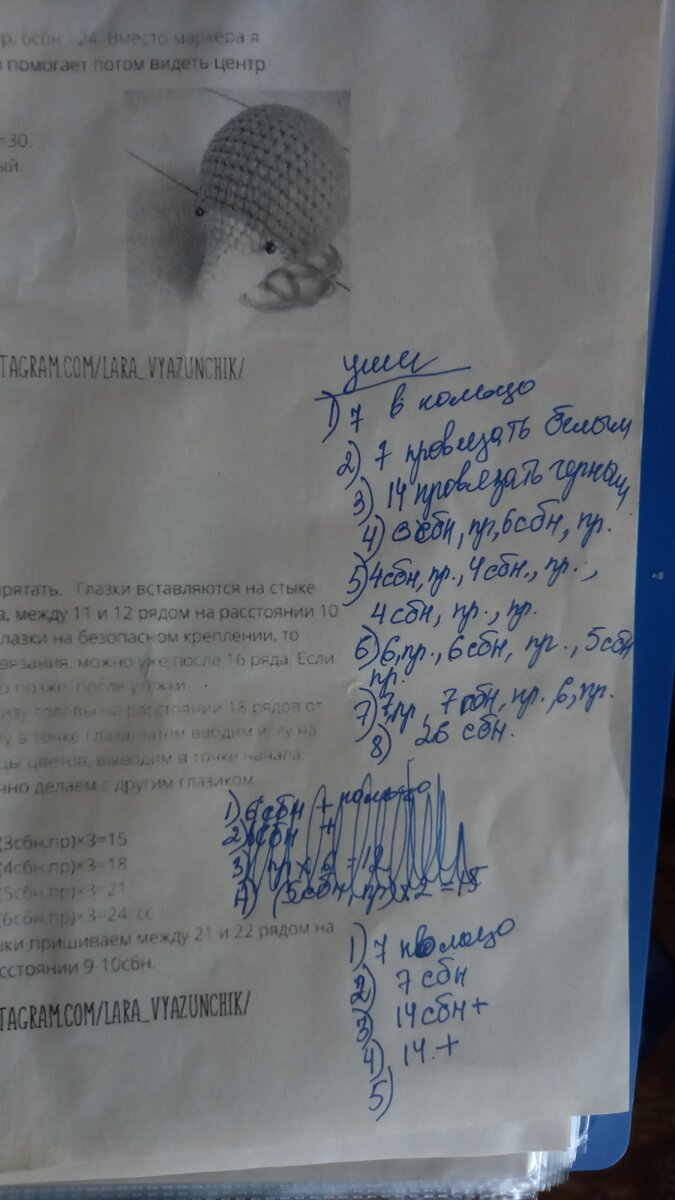 пр, 6сбн 24. Вместо маркера я
помогает потом видеть центр
=30.
ый
TAGRAM.COM/LARA_VYAZUNCHIK/
уши
1) 7 в кольцо
2) 7 провязать белым
3) 14 провязать черным
4) 3сбн, пр, 6сбн, пр.
5) 4сбн, пр., 4сбн., пр.,
4сбн, пр., пр.
6) 6, пр., 6сбн, пр., 5сбн
пр.
7) 7, пр, 7сбн, пр., 6, пр.
8) 26 сбн.
прятать. Глазки вставляются на стыке
а, между 11 и 12 рядом на расстоянии 10
лазки на безопасном креплении, то
вязания, можно уже после 16 ряда. Если
позже, после утяжки
изу головы на расстоянии 18 рядов от
у в точке глаза, затем вводим иглу на
цы цветов, выводим в точке начала.
чно делаем с другим глазиком
(3сбн,пр)×3=15
(4сбн,пр)×3=18
(5сбн,пр)×3=21
(6сбн,пр)×3=24. сс
шки пришиваем между 21 и 22 рядом на
сстоянии 9-10сбн.
TAGRAM.COM/LARA_VYAZUNCHIK/
1) 6сбн + кольцо
2) 6сбн +
3) пр x 6 = 12
4) (5сбн, пр) x 2 = 15
1) 7 кольцо
2) 7 сбн
3) 14сбн+
4) 14.+
5)